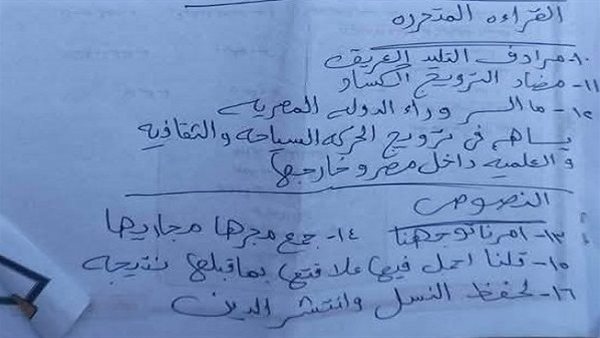 القراءه المتحرره
١٠- مرادف التليد العريق
١١- مضاد الترويج الكساد
١٢- ما السر وراء الدوله المصريه
يساهم فى ترويج الحركه السياحه والثقافيه
والعلميه داخل مصر وخارجها
النصوص
١٣- امرنا توجهنا ١٤- جمع مجرها مجاريها
١٥- قلنا احمل فيها علاقتها بماقبلها نتيجه
١٦- لحفظ النسل وانتشر الدين